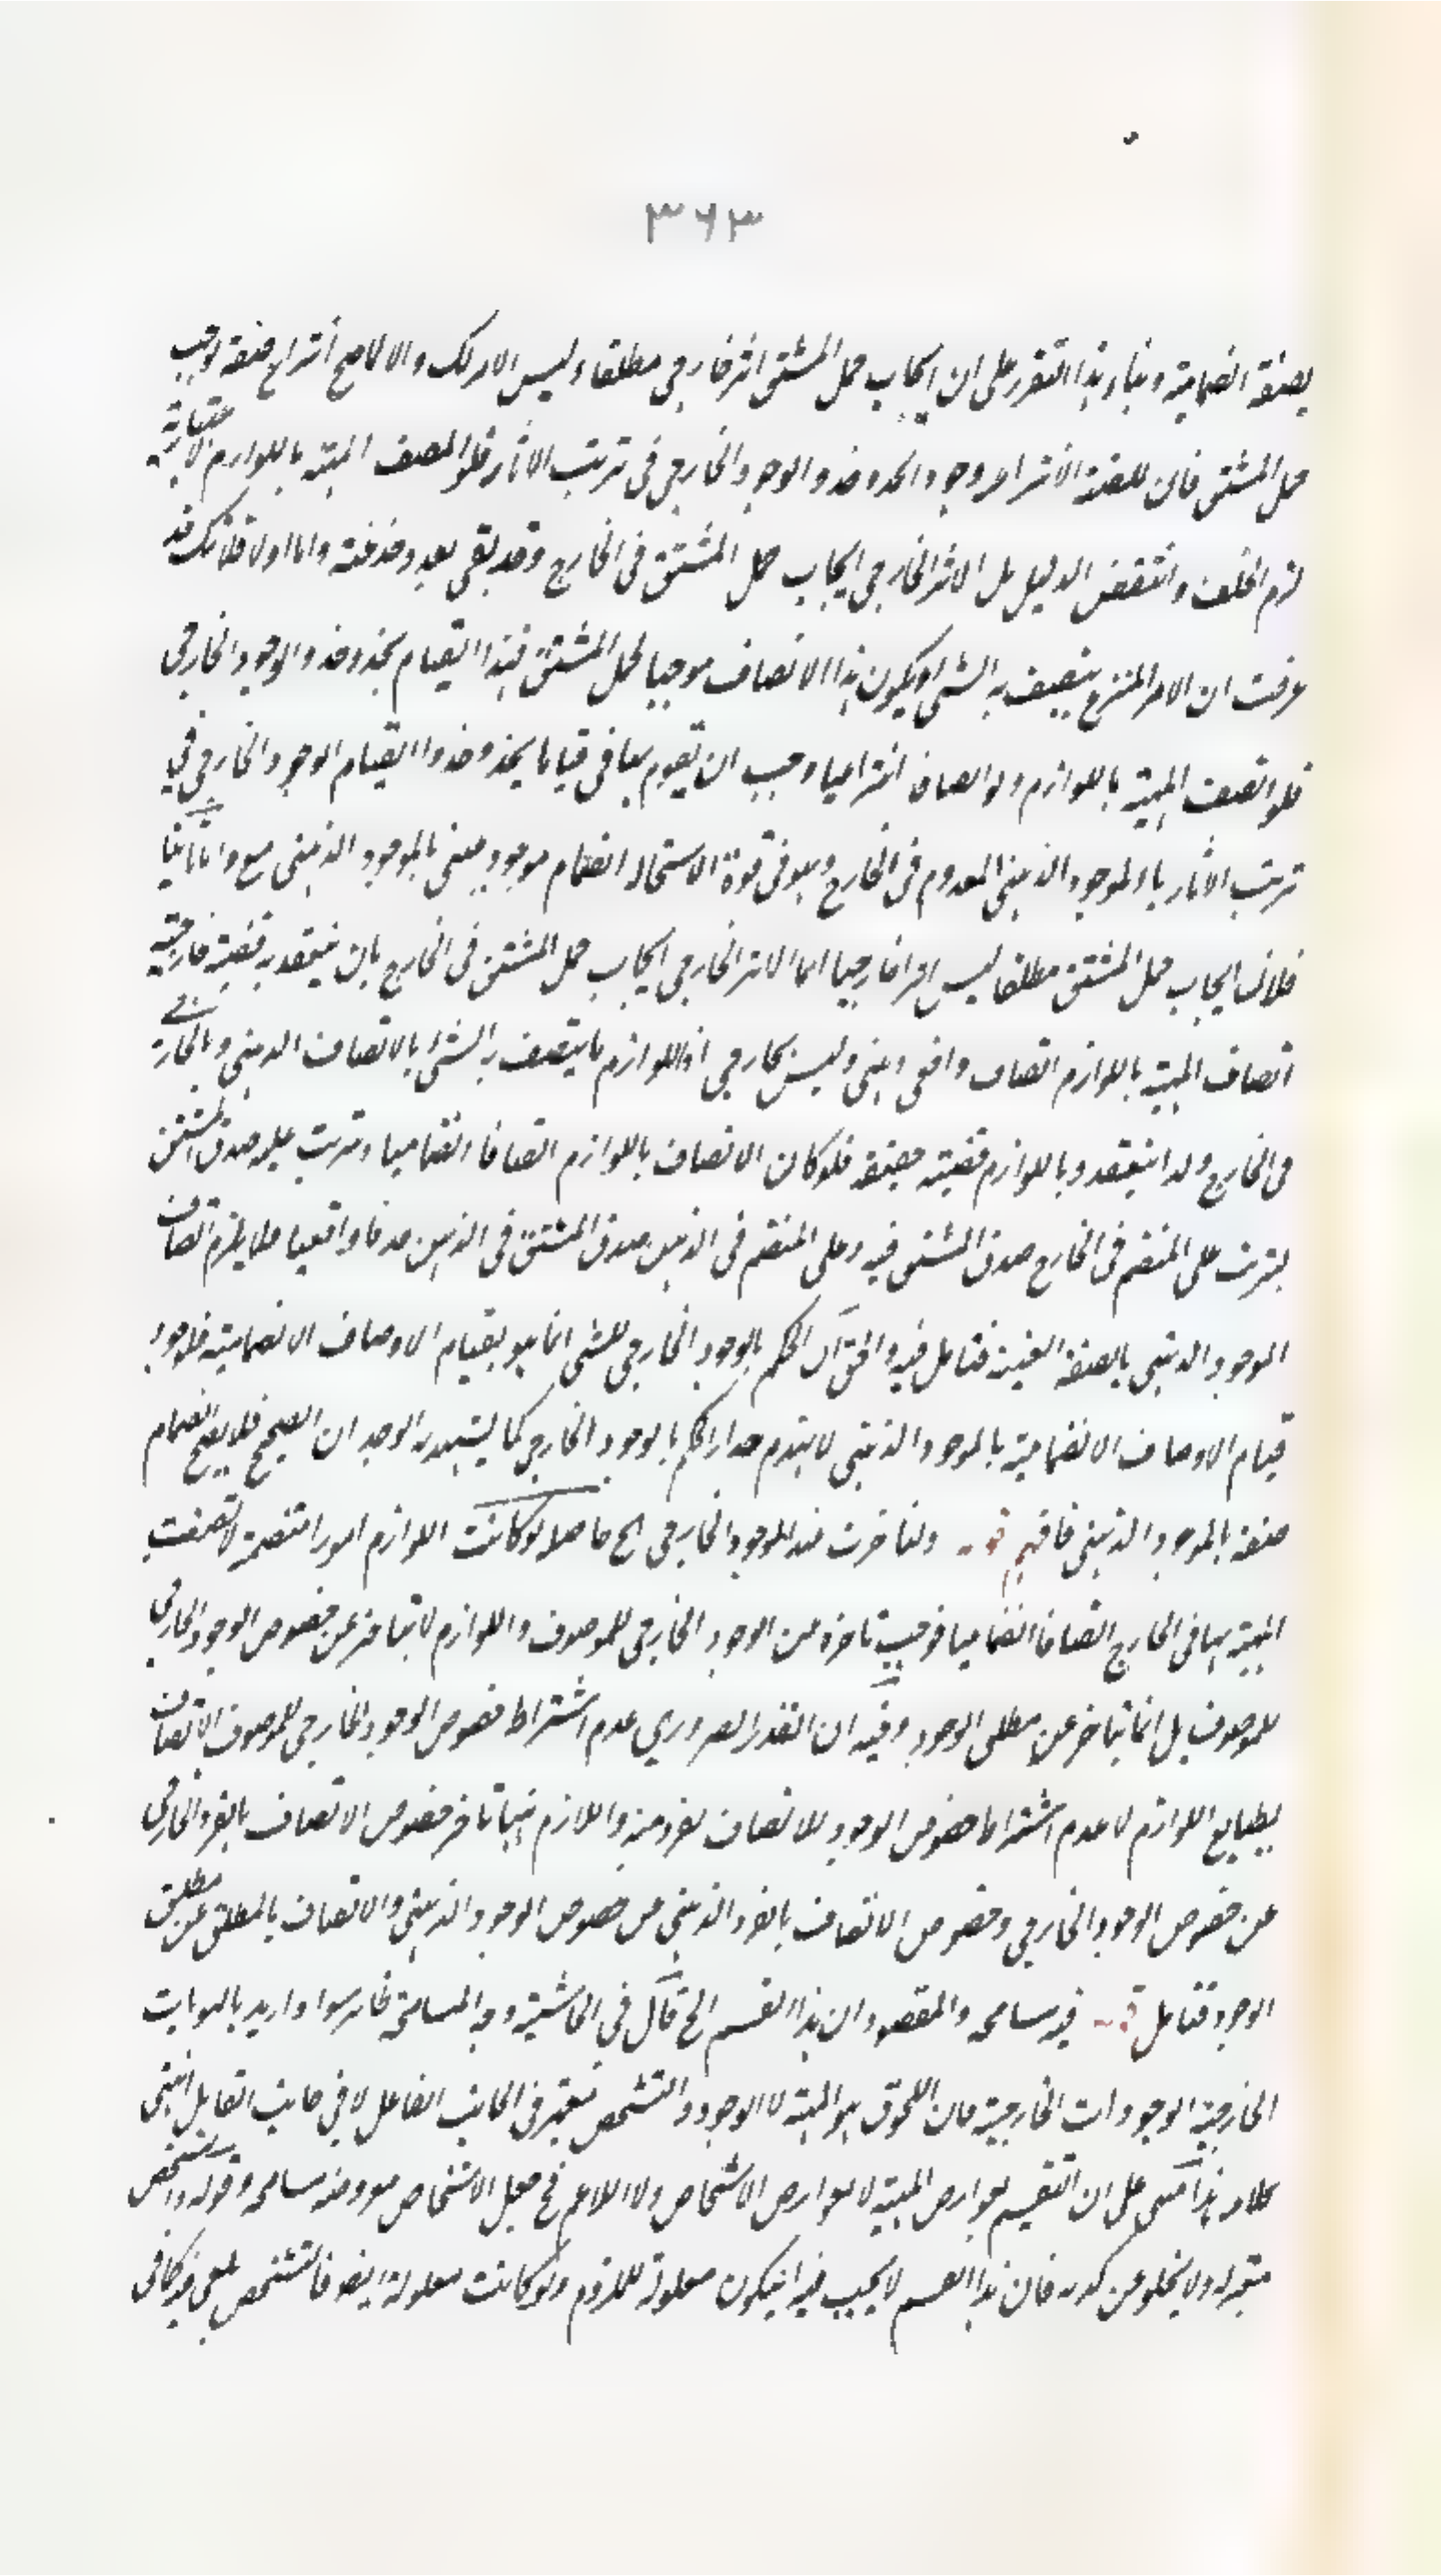 ٣٦٣
بصفة انضمامية وبناء هذا التقرر على ان ايجاب حمل المشتق اثر خارجي مطلقا وليس الامر كذلك والا لامتنع انتزاع صفة توجب
حمل المشتق فان للصفة الانتزاعية وجود يحذو حذو الوجود الخارجي في ترتب الاثار فلو اتصف المهية باللوازم
لزم الخلف وانتقض الدليل بل الاثر الخارجي ايجاب حمل المشتق في الخارج وقد بقي بعد وفيه واما اولا فلانك قد
عرفت ان الامر المنتزع يتصف به الشي ويكون هذا الاتصاف موجبا لحمل المشتق فهذا القيام يحذو حذو الوجود الخارجي
فلو اتصف المهية باللوازم ولو اتصافا انتزاعيا وجب ان تقوم بها في قياما يحذو حذو القيام الوجود الخارجي في
ترتب الاثار بالموجود الذهني المعدوم في الخارج وهو في قوة الاستحالة انضمام موجود عيني بالموجود الذهني واما ثانيا
فلان ايجاب حمل المشتق مطلقا ليس اثرا خارجيا انما الاثر الخارجي ايجاب حمل المشتق في الخارج بان ينعقد به قضية خارجية
اتصاف المهية باللوازم اتصاف واقعي ذهني وليس بخارجي اذ اللوازم ما يتصف به الشي بالاتصاف الذهني
في الخارج ولذا ينعقد باللوازم قضية حقيقة فلو كان الاتصاف باللوازم اتصافا انضماميا وترتب عليه صدق المشتق
يترتب على المنضم في الخارج صدق المشتق فيه وعلى المنضم في الذهن صدق المشتق في الذهن صدقا واقعيا فلا يلزم اتصاف
الموجود الذهني بالصفة العينية فتامل فيه والحق ان الحكم بالوجود الخارجي للشي انما هو بقيام الاوصاف الانضمامية
قيام الاوصاف الانضمامية بالموجود الذهني لانهدم مدار الحكم بالوجود الخارجي كما يشهد به الوجدان الصحيح فلا يصح انضمام
صفة بالموجود الذهني فافهم قوله ولتاخرت عند الموجود الخارجي الخ حاصله لو كانت اللوازم امورا منضمة لاتصفت
المهية بها في الخارج اتصافا انضماميا فوجب تاخره عن الوجود الخارجي للموصوف واللوازم لا يتاخر عن خصوص الوجود الخارجي
للموصوف بل انما يتاخر عن مطلق الوجود وفيه ان القدر الضروري عدم اشتراط خصوص الوجود الخارجي للموصوف لاتصاف
بطبايع اللوازم لا عدم اشتراط خصوص الوجود للاتصاف بفرد منه واللازم ههنا تاخر خصوص الاتصاف بالفرد الخارجي
عن خصوص الوجود الخارجي وخصوص الاتصاف بالفرد الذهني عن خصوص الوجود الذهني والاتصاف بالمطلق عن مطلق
الوجود فتامل قوله فيه مسامحة والمقصود ان هذا القسم الخ قال في الحاشية وجه المسامحة ظاهر سواء اريد بالهويات
الخارجية الوجودات الخارجية فان اللحوق هو المهية لا الوجود والتشخص معتبر في الجانب الفاعل لا في جانب القابل انتهى
كلامه هذا مبني على ان التقسيم لعوارض المهية لا لعوارض الاشخاص ولا الاعم فح جعل الاشخاص معروضة مسامحة وقوله والتشخص
معتبر ولا يخلو عن كدر فان هذا القسم لا يجب فيه ان يكون معلولة للملزوم ولو كانت معلولة ايضا فالتشخص ملغى فيه كما في